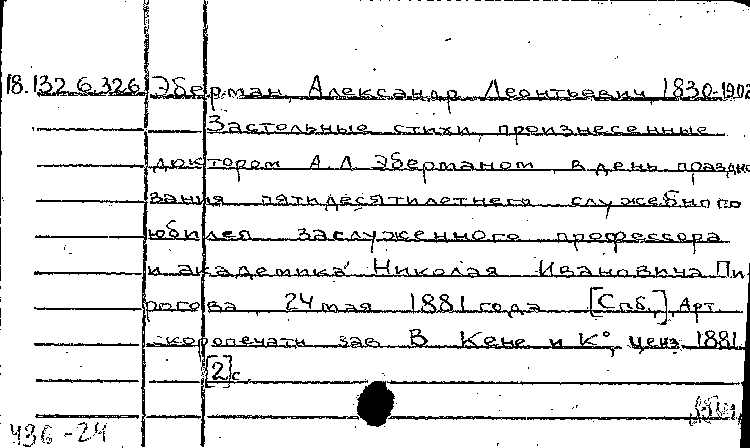 18.132.6.326 Эберман, Александр Леонтьевич, 1830-1902
Застольные стихи, произнесенные
доктором А.Л. Эберманом в день праздно
вания пятидесятилетнего служебного
юбилея заслуженного профессора
и академика Николая Ивановича Пи
рогова, 24 мая 1881 года [Спб.], Арт.
скоропечати зав. В. Кене и К°, ценз. 1881.
[2] с.
436-24